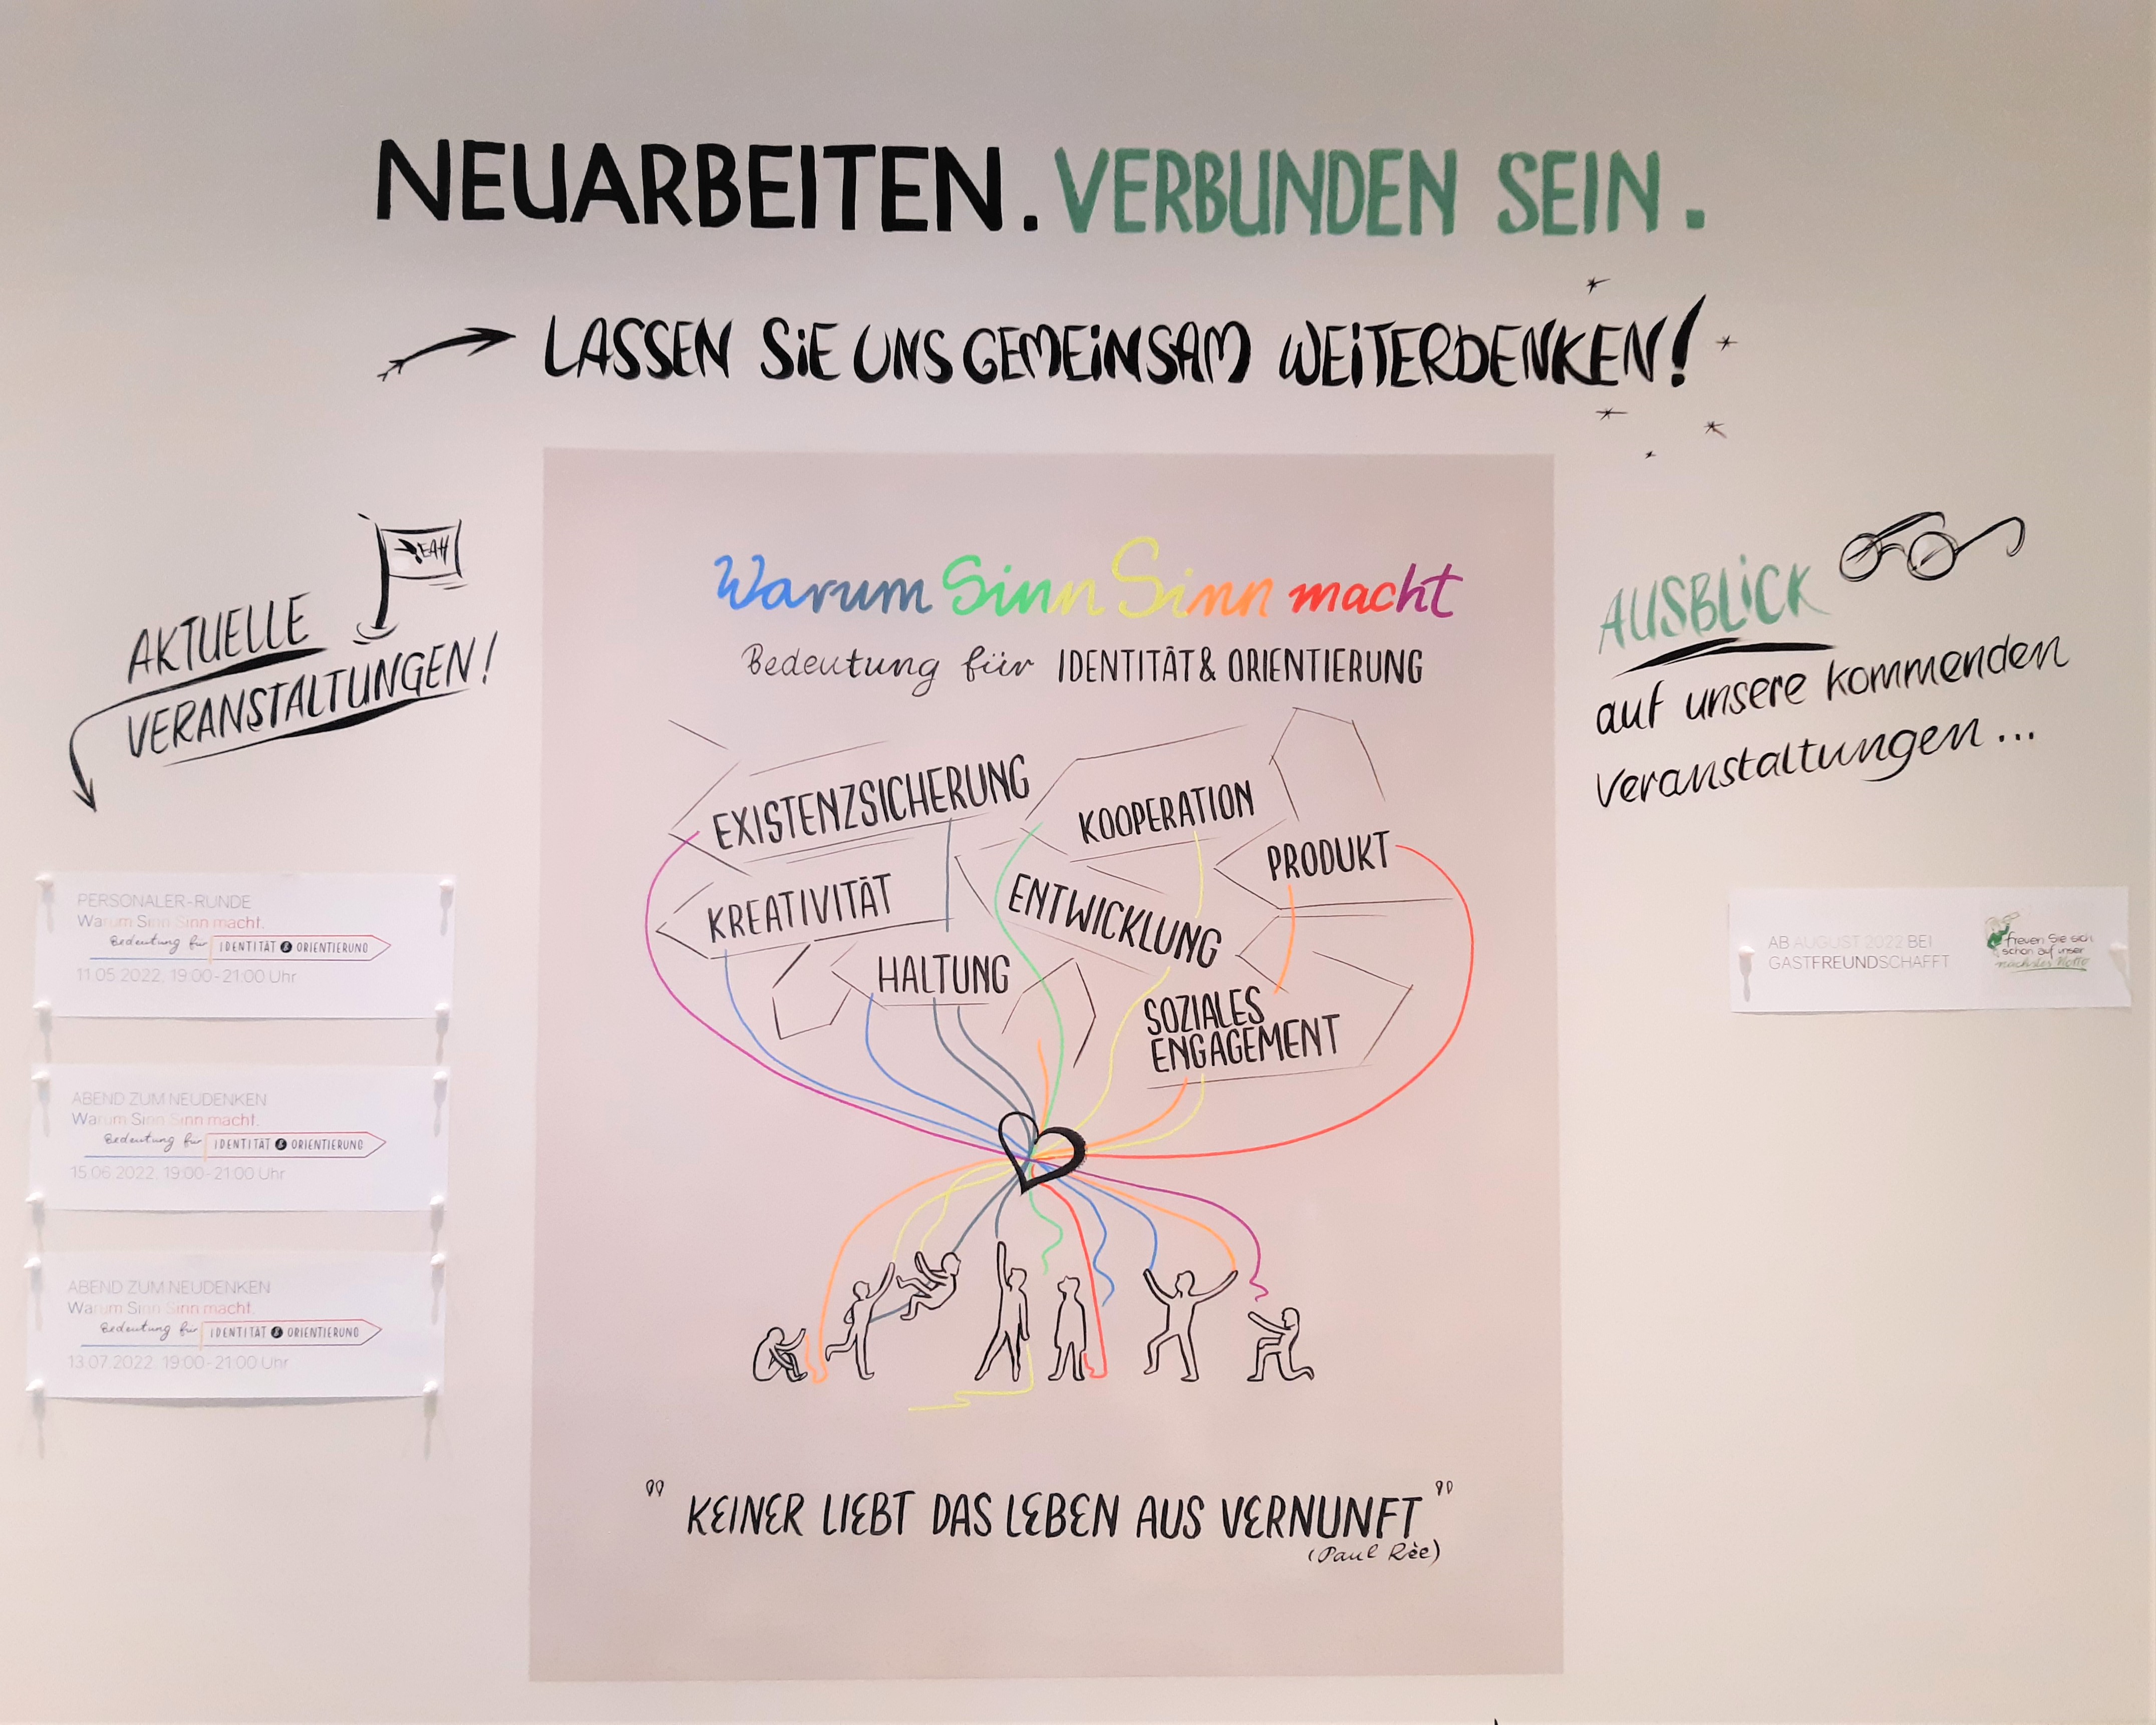 NEUARBEITEN. VERBUNDEN SEIN.
LASSEN SIE UNS GEMEINSAM WEITERDENKEN!
YEAH
AKTUELLE
VERANSTALTUNGEN!
PERSONALER-RUNDE
Warum Sinn Sinn macht.
Bedeutung für IDENTITÄT & ORIENTIERUNG
11.05.2022, 19:00-21:00 Uhr
ABEND ZUM NEUDENKEN
Warum Sinn Sinn macht.
Bedeutung für IDENTITÄT & ORIENTIERUNG
15.06.2022, 19:00-21:00 Uhr
ABEND ZUM NEUDENKEN
Warum Sinn Sinn macht.
Bedeutung für IDENTITÄT & ORIENTIERUNG
13.07.2022, 19:00-21:00 Uhr
Warum Sinn Sinn macht
Bedeutung für IDENTITÄT & ORIENTIERUNG
EXISTENZSICHERUNG
KOOPERATION
PRODUKT
KREATIVITÄT
ENTWICKLUNG
HALTUNG
SOZIALES
ENGAGEMENT
"KEINER LIEBT DAS LEBEN AUS VERNUNFT"
(Paul Rèe)
AUSBLICK
auf unsere kommenden
Veranstaltungen...
AB AUGUST 2022 BEI
GASTFREUNDSCHAFFT
freuen Sie sich
schon auf unser
nächstes Motto